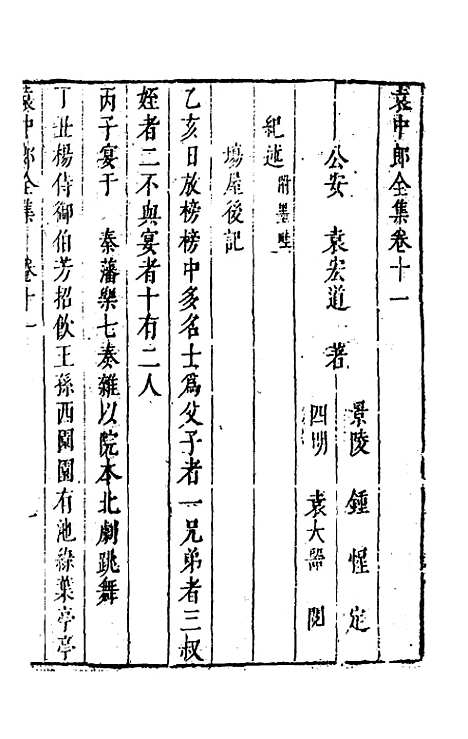 袁中郎全集卷十一
景陵 鍾惺 定
公安 袁宏道 著
四明 袁大 閱
紀述 附墨畦
塲屋後記
乙亥日放榜榜中多名士爲父子者一兄弟者三叔
姪者二不與宴者十有二人
丙子宴于 秦藩樂七奏雜以院本北劇跳舞
丁丑楊侍御伯芳招飲王孫西園園有池綠葉亭亭
袁中郎全集 卷十一